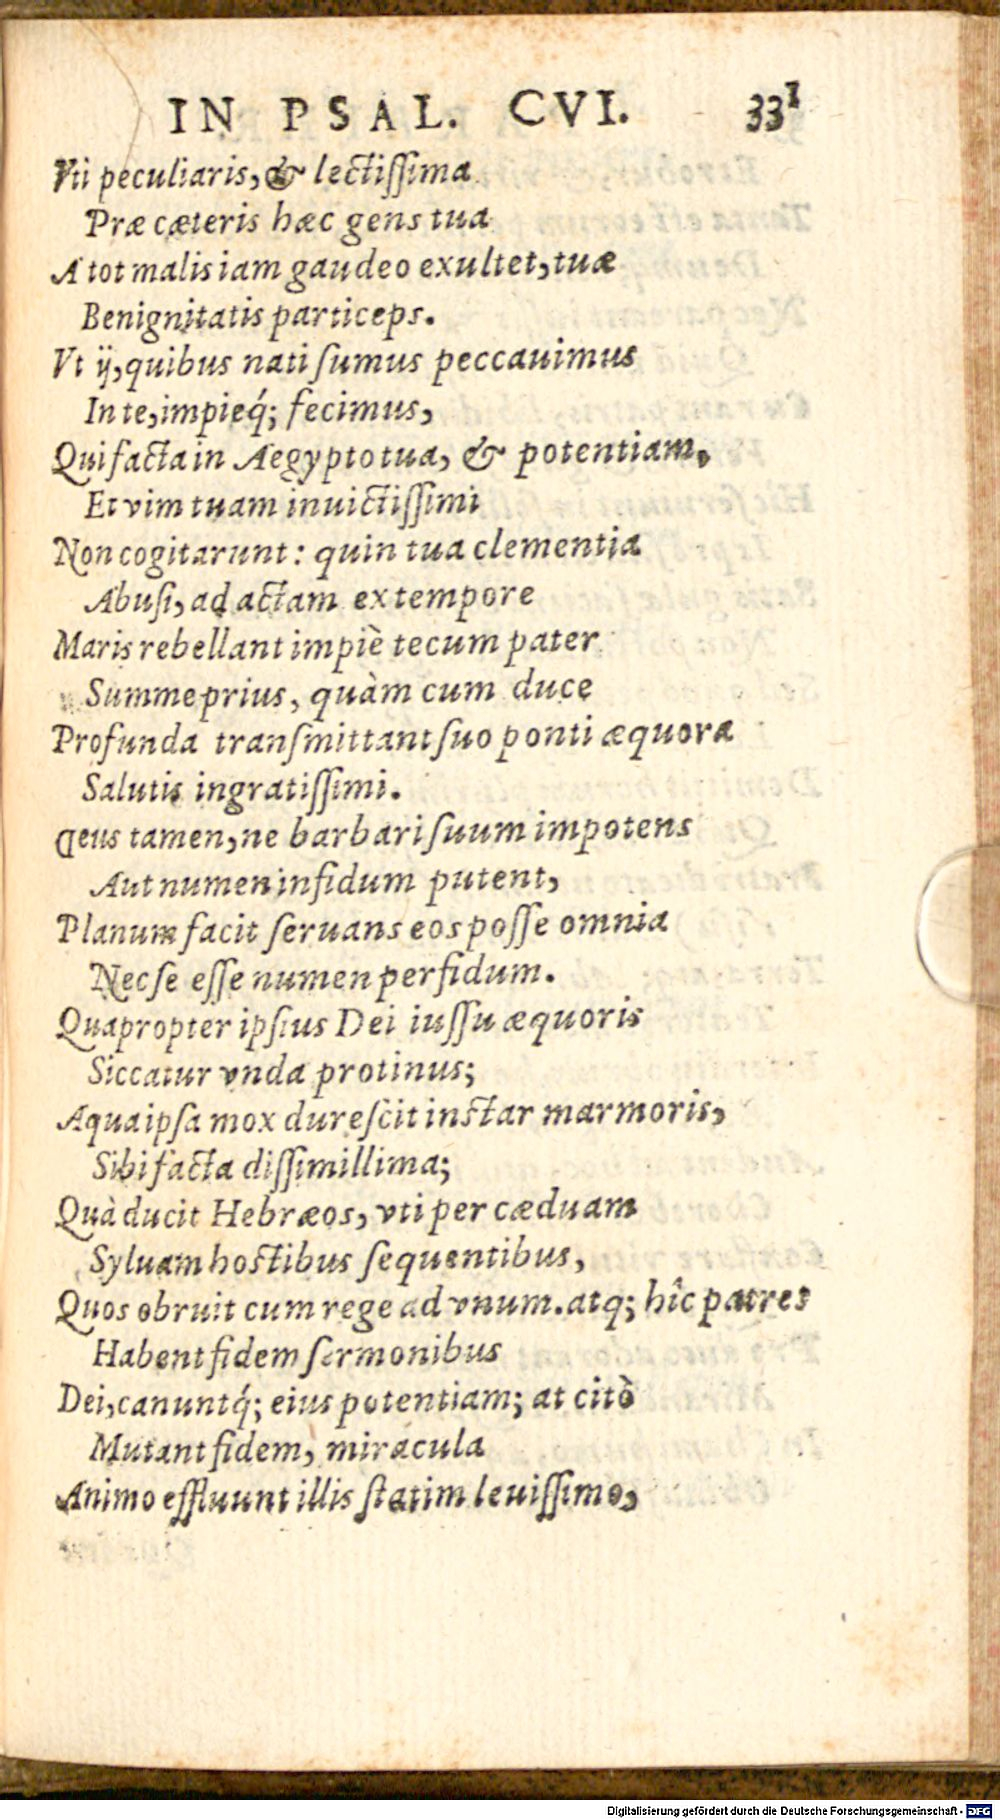 IN PSAL. CVI. 331
Vti peculiaris, & lectissima
Præ cæteris hæc gens tua
A tot malis iam gaudeo exultet, tuæ
Benignitatis particeps.
Vt ij, quibus nati sumus peccauimus
In te, impieq́; fecimus,
Qui facta in Aegypto tua, & potentiam,
Et vim tuam inuictissimi
Non cogitarunt: quin tua clementia
Abusi, ad actam extempore
Maris rebellant impiè tecum pater
Summe prius, quàm cum duce
Profunda transmittant suo ponti æquora
Salutis ingratissimi.
Deus tamen, ne barbari suum impotens
Aut numen infidum putent,
Planum facit seruans eos posse omnia
Nec se esse numen perfidum.
Quapropter ipsius Dei iussu æquoris
Siccatur vnda protinus;
Aqua ipsa mox durescit instar marmoris,
Sibi facta dissimillima;
Quà ducit Hebræos, vti per cæduam
Syluam hostibus sequentibus,
Quos obruit cum rege ad vnum. atq; hîc patres
Habent fidem sermonibus
Dei, canuntq́; eius potentiam; at citò
Mutant fidem, miracula
Animo effluunt illis statim leuissimo,
Digitalisierung gefördert durch die Deutsche Forschungsgemeinschaft - DFG